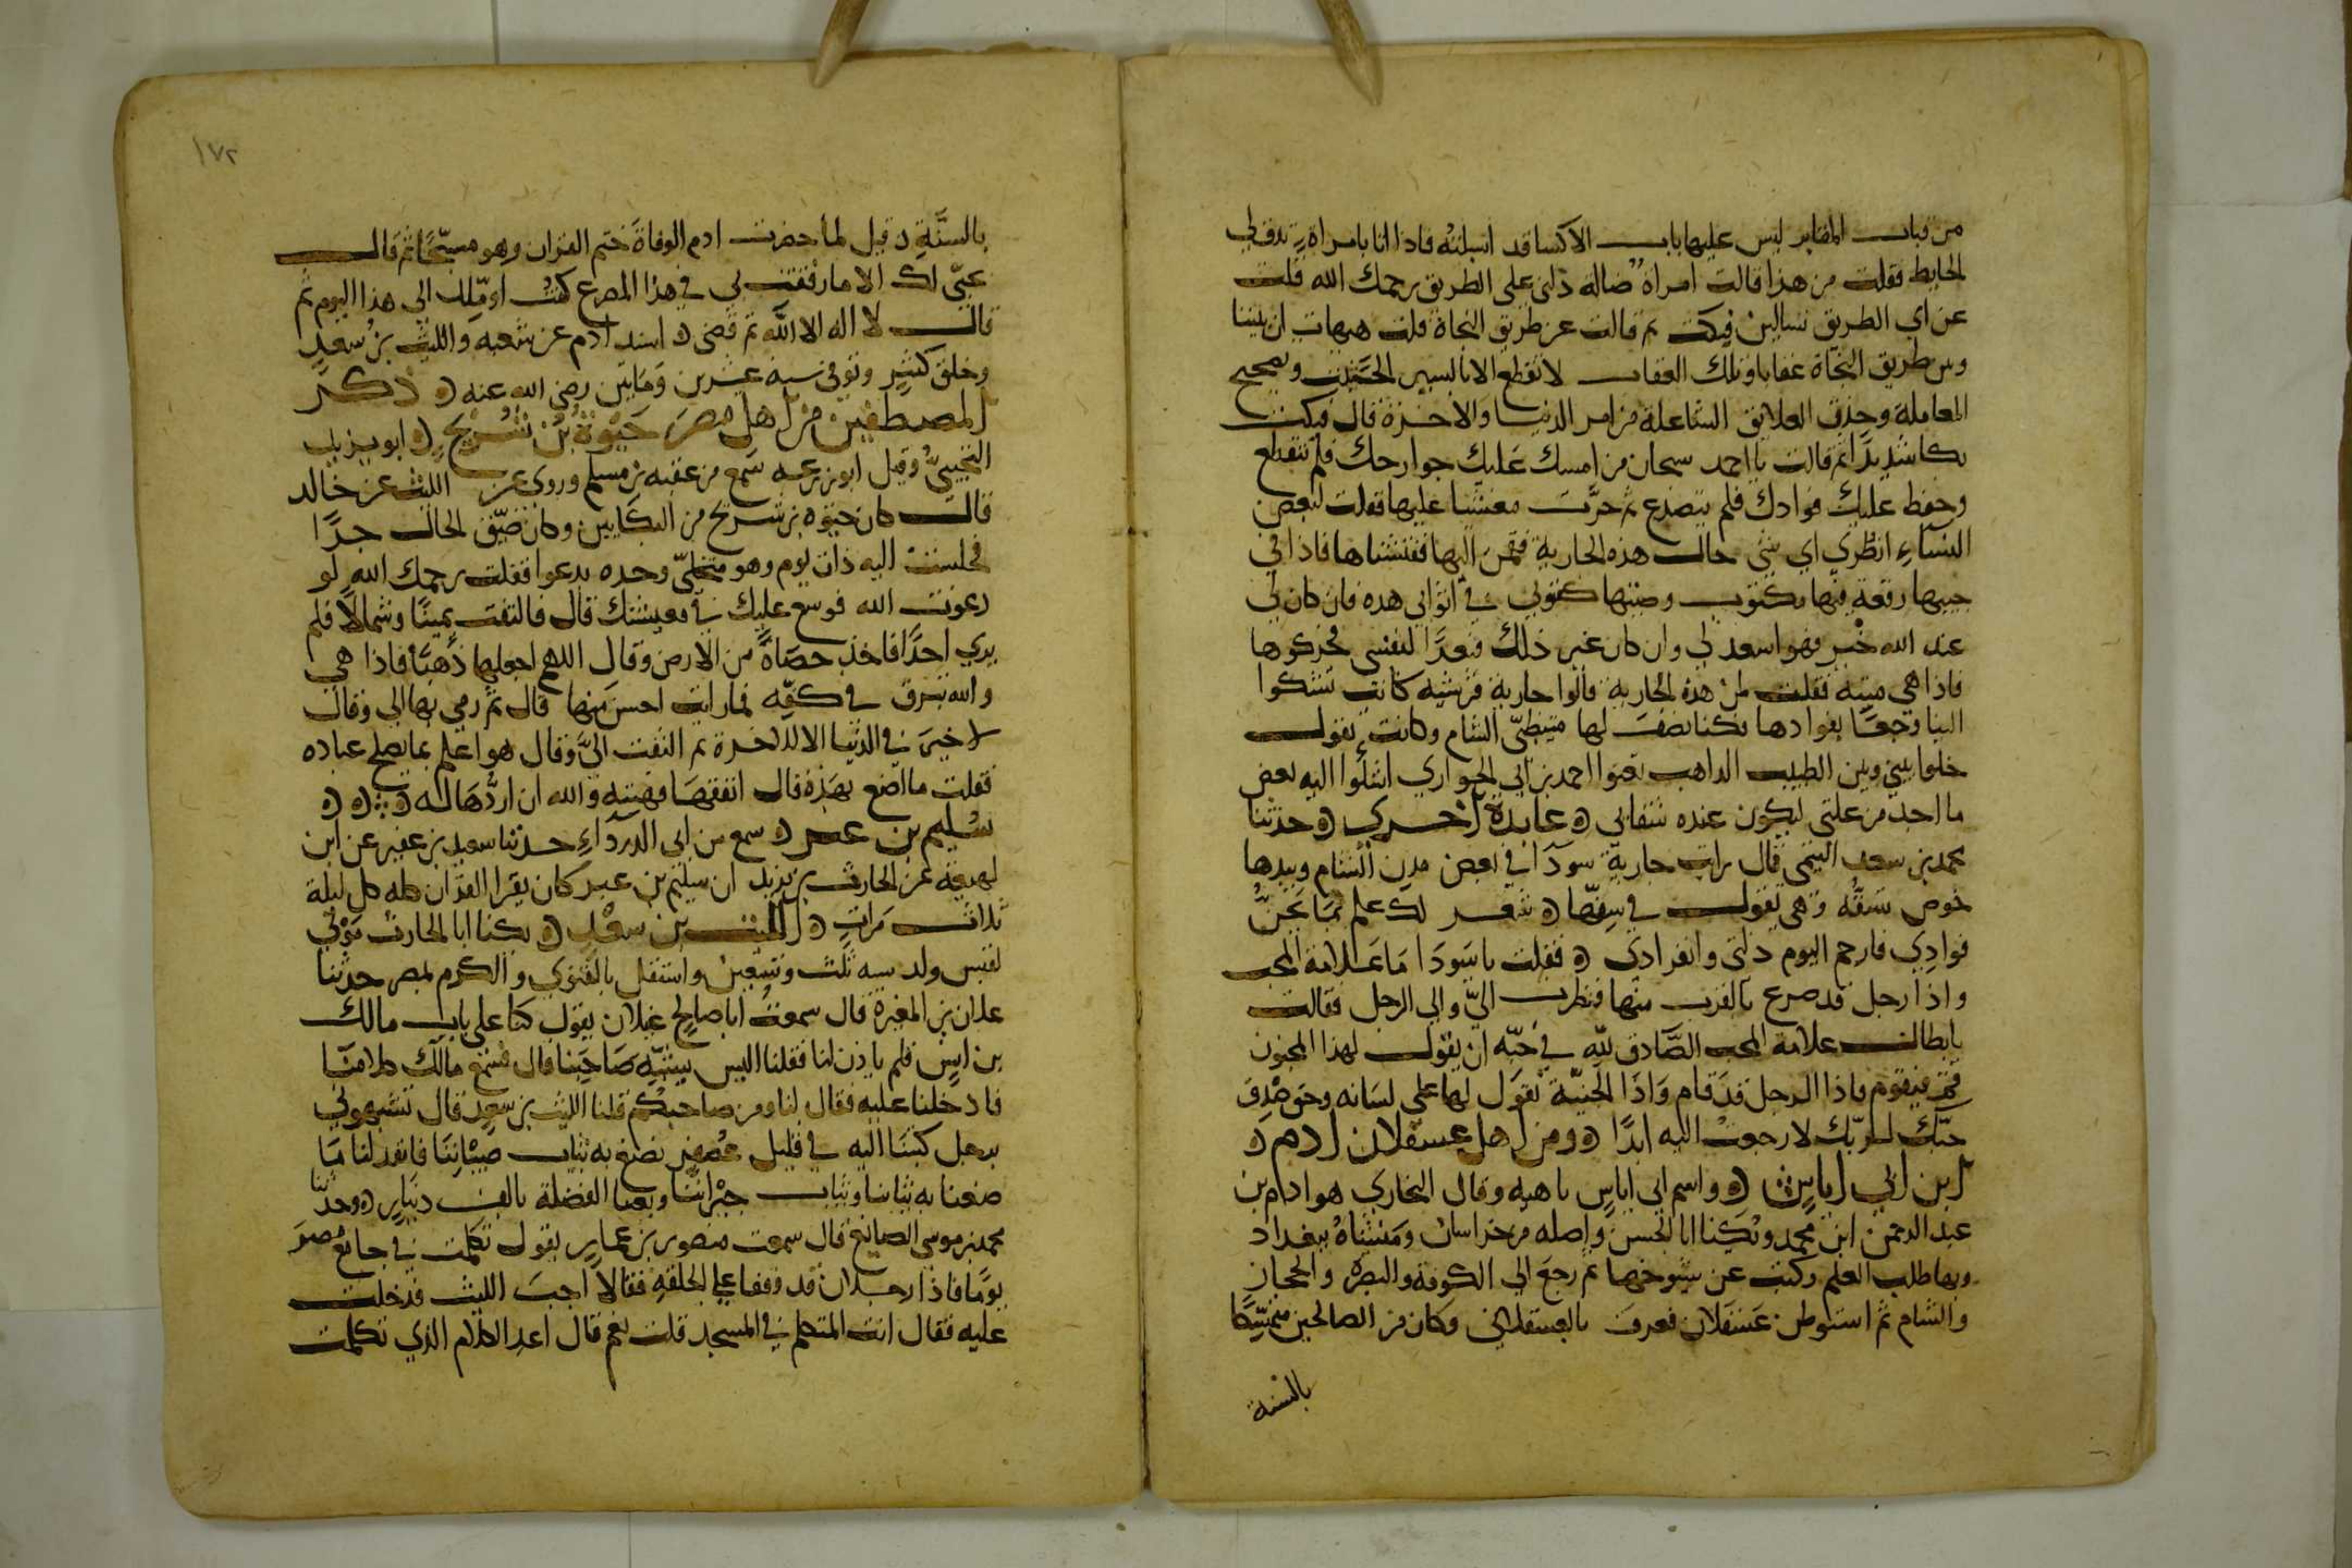 من قباب المقابر ليس عليها باب الا كسا قد اسبلته فاذا انا بامراة تدق لي
الحايط فقلت من هذا قالت امراة ضالة دلني على الطريق رحمك الله قلت
عن اي الطريق تسالين فبكت ثم قالت عن طريق النجاة قلت هيهات ان بيننا
وبين طريق النجاة عقابا وتلك العقاب لا تقطع الا بالسير الحثيث وتصحيح
المعاملة وحذف العلائق الشاغلة من امر الدنيا والاخرة قال فبكت
بكا شديدا ثم قالت يا احمد سبحان من امسك عليك جوارحك فلم تتقطع
وحفظ عليك فوادك فلم يتصدع ثم خرت مغشيا عليها فقلت لبعض
النساء انظري اي شي حال هذه الجارية فقمن اليها ففتشناها فاذا في
جيبها رقعة فيها مكتوب وصيتها كفنوني في اثوابي هذه فان كان لي
عند الله خير فهو اسعد لي وان كان غير ذلك فبعدا لنفسي فحركوها
فاذا هي ميتة فقلت لمن هذه الجارية قالوا جارية قرشية كانت تشكوا
الينا وجعا بفوادها فكنا نصف لها متطببي الشام وكانت تقول
خلوا بيني وبين الطبيب الراهب تعنوا احمد بن ابي الحواري اشكوا اليه بعض
ما اجد من علتي ليكون عنده شفايي ه عابدة اخرى ه حدثنا
محمد بن سعد التيمي قال رايت جارية سودا في بعض مدن الشام وبيدها
خوص تسفه وهي تقول في سفها ه شعر لك علم بما يجن
فوادي فارحم اليوم ذلتي وانفرادي ه فقلت يا سودا ما علامة المحب
واذا رجل قد صرع بالقرب منها فنظرت الي والى الرجل فقالت
يا بطال علامة المحب الصادق لله في حبه ان يقول لهذا المجنون
قم فيقوم فاذا الرجل قد قام واذا الجنية تقول لها على لسانه وحق صدق
حبك لربك لا رجعت اليه ابدا ه ومن اهل عسقلان ادم ه
ابن ابي اياس ه واسم ابي اياس ناهيه وقال البخاري هو ادام بن
عبد الرحمن ابن محمد ويكنا ابا الحسن واصله من خراسان ومنشاه ببغداد
وبها طلب العلم وكتب عن شيوخها ثم رجع الى الكوفة والبصره والحجاز
والشام ثم استوطن عسقلان فعرف بالعسقلاني وكان من الصالحين متمسكا
بالسنة
١٧٢
بالسنة ه قيل لما حضرت ادم الوفاة ختم القران وهو مسجا ثم قال
بحبي لك الا ما رفقت بي في هذا المصرع كنت اوملك الى هذا اليوم ثم
قال لا اله الا الله ثم قضى ه اسند ادم عن شعبه والليث بن سعد
وخلق كثير وتوفي سنه عشرين ومايتين رضي الله عنه ه ذكر
المصطفين من اهل مصر حيوة بن شريح ه ابو يزيد
التجيبي وقيل ابو زرعه سمع من عقبه بن مسلم وروى عن الليث عن خالد
قال كان حيوه بن شريح من البكايين وكان ضيق الحال جدا
فجلست اليه ذات يوم وهو متخلي وحده يدعوا فقلت رحمك الله لو
دعوت الله فوسع عليك في معيشتك قال فالتفت يمينا وشمالا فلم
يري احدا فاخذ حصاة من الارض وقال اللهم اجعلها ذهبا فاذا هي
والله تبرق في كفه فما رايت احسن منها قال ثم رمى بها الي وقال
لا خير في الدنيا الا للاخرة ثم التفت الي وقال هو اعلم بما يصلح عباده
فقلت ما اصنع بهذه قال انفقها فهبته والله ان اردها اله ه ه ه
سليم بن عمر ه سمع من ابي الدرداء حدثنا سعيد بن عفير عن ابن
لهيعة عن الحارث بن يزيد ان سليم بن عمر كان يقرا القران كله كل ليلة
ثلاث مرات ه الليث بن سعد ه يكنا ابا الحارث مولى
لقيس ولد سنه ثلث وتسعين واستقل بالفتوى والكرم بمصر حدثنا
علان بن المغيرة قال سمعت ابا صالح غيلان يقول كنا على باب مالك
بن انس فلم ياذن لنا فقلنا ليس يشبه صاحبنا قال فسمع مالك كلامنا
فادخلنا عليه فقال لنا ومن صاحبكم قلنا الليث بن سعد قال تشبهوني
برجل كتبنا اليه في قليل عصفر نصبغ به ثياب صبياننا فانفد لنا ما
صبغنا به ثيابنا وثياب جيراننا وبعنا الفضلة بالف دينار ه وحدثنا
محمد بن موسى الصايغ قال سمعت منصور بن عمار يقول تكلمت في جامع مصر
يوما فاذا رجلان قد وقفا على الحلقه فقالا اجب الليث فدخلت
عليه فقال انت المتكلم في المسجد قلت نعم قال اعد الكلام الذي تكلمت